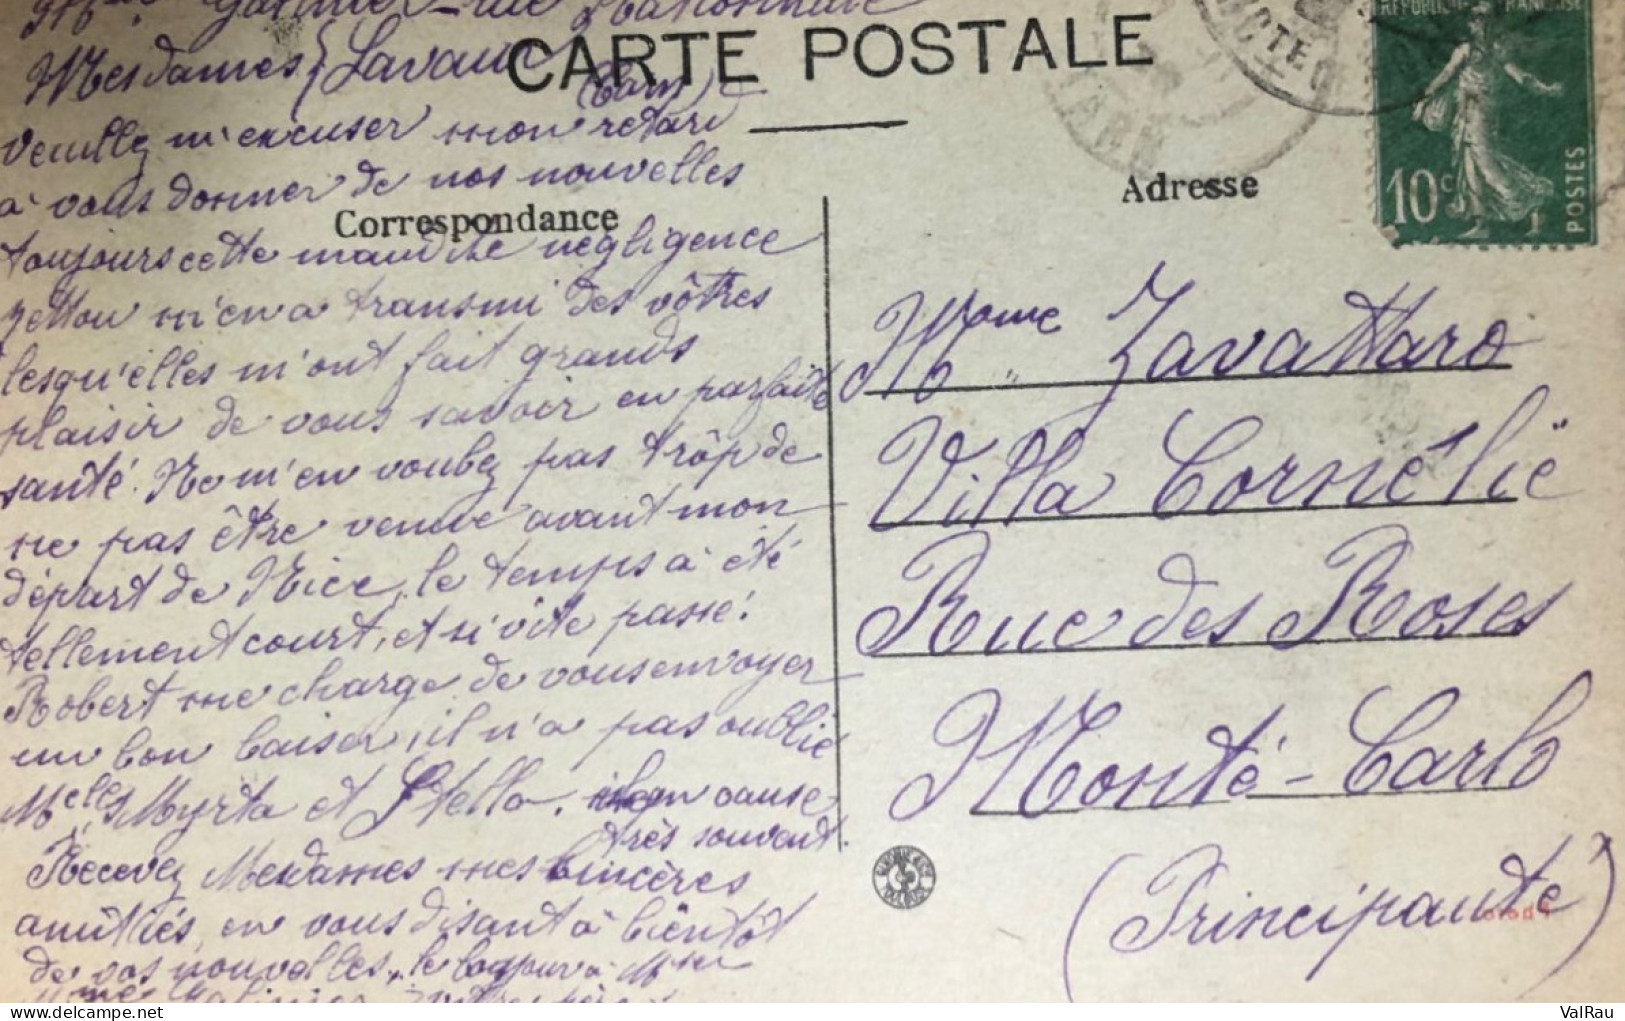 Mme Garinie - rue Nationnale
Mesdames Lavaur
(Tarn)
CARTE POSTALE
Veuillez m'excuser mon retard
à vous donner de nos nouvelles
Correspondance
toujours cette maudite négligence
m'en a transmi des vôtres
lesqu'elles m'ont fait grands
plaisir de vous savoir en parfaite
santé. Ne m'en voulez pas trôp de
ne pas être venue avant mon
départ de Nice, le temps à été
tellement court, et si vite passé.
Robert me charge de vous envoyer
un bon baiser, il n'a pas oublié
Melles Myrta et Stella, il en cause
très souvent.
Recevez Mesdames mes sincères
amitiés, en vous disant à bientôt
de vos nouvelles, le bonjour à
Adresse
REPUBLIQUE FRANÇAISE
10c
POSTES
TARN
Mome Zavattaro
Villa Cornélië
Rue des Roses
Monté-Carlo
(Principauté)
ValRau